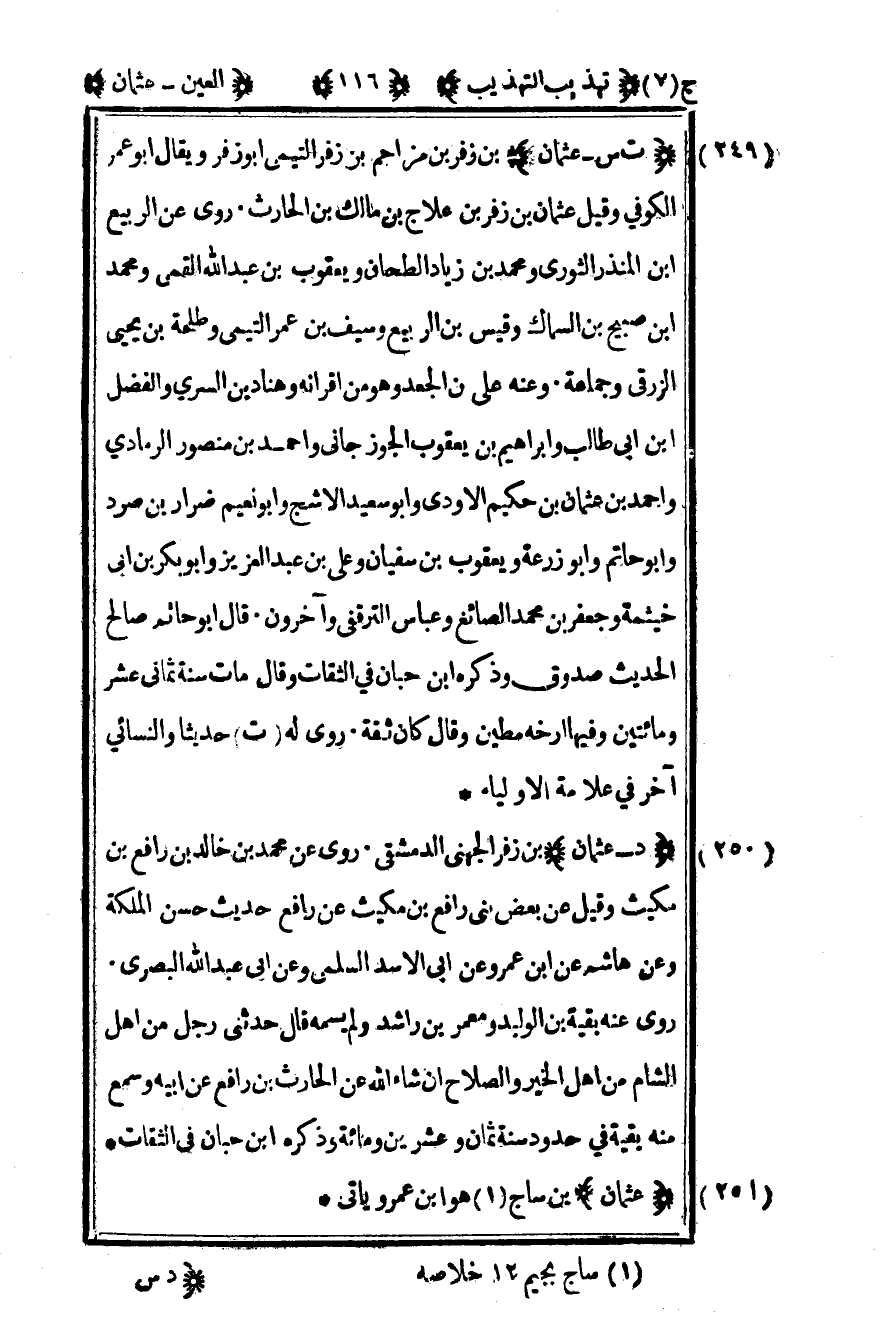 ج(٧) ﴿ تهذيب التهذيب ﴾ ﴿ ١١٦ ﴾ ﴿ العين - عثمان ﴾
(٢٤٩) ﴿ ت س - عثمان ﴾ بن زفر بن مزاحم بن زفر التيمى ابو زفر ويقال ابو عمر
الكوفي وقيل عثمان بن زفر بن علاج بن مالك بن الحارث ۰ روى عن الربيع
ابن المنذر الثورى ومحمد بن زياد الطحان ويعقوب بن عبدالله القمى ومحمد
ابن صبيح بن السماك وقيس بن الربيع وسيف بن عمر التيمى وطلحة بن يحيى
الزرقى وجماعة ۰ وعنه على ن الجعد وهو من اقرانه وهناد بن السري والفضل
ابن ابى طالب وابراهيم بن يعقوب الجوزجانى واحمد بن منصور الرمادي
واحمد بن عثمان بن حكيم الاودى وابو سعيد الاشج وابو نعيم ضرار بن صرد
وابو حاتم وابو زرعة ويعقوب بن سفيان وعلى بن عبد العزيز وابو بكر بن ابى
خيثمة وجعفر بن محمد الصائغ وعباس الترقفى وآخرون ۰ قال ابو حاتم صالح
الحديث صدوق وذكره ابن حبان في الثقات وقال مات سنة ثمانى عشر
ومائتين وفيها ارخه مطين وقال كان ثقة ۰ روى له (ت) حديثا والنسائي
آخر في علامة الاولياء *
(٢٥٠) ﴿ د - عثمان ﴾ بن زفر الجهنى الدمشقى ۰ روى عن محمد بن خالد بن رافع بن
مكيث وقيل عن بعض بنى رافع بن مكيث عن رافع حديث حسن الملكة
وعن هاشم عن ابن عمر وعن ابى الاسد السلمى وعن ابى عبدالله البصرى ۰
روى عنه بقية بن الوليد ومعمر بن راشد ولم يسمه قال حدثنى رجل من اهل
الشام من اهل الخير والصلاح ان شاء الله عن الحارث بن رافع عن ابيه وسمع
منه بقية في حدود سنة ثمان وعشرين ومائة وذكره ابن حبان فى الثقات *
(٢٥١) ﴿ عثمان ﴾ بن ساج (١) هو ابن عمرو ياتى *
(١) ساج بجيم ١٢ خلاصه ﴿ د س